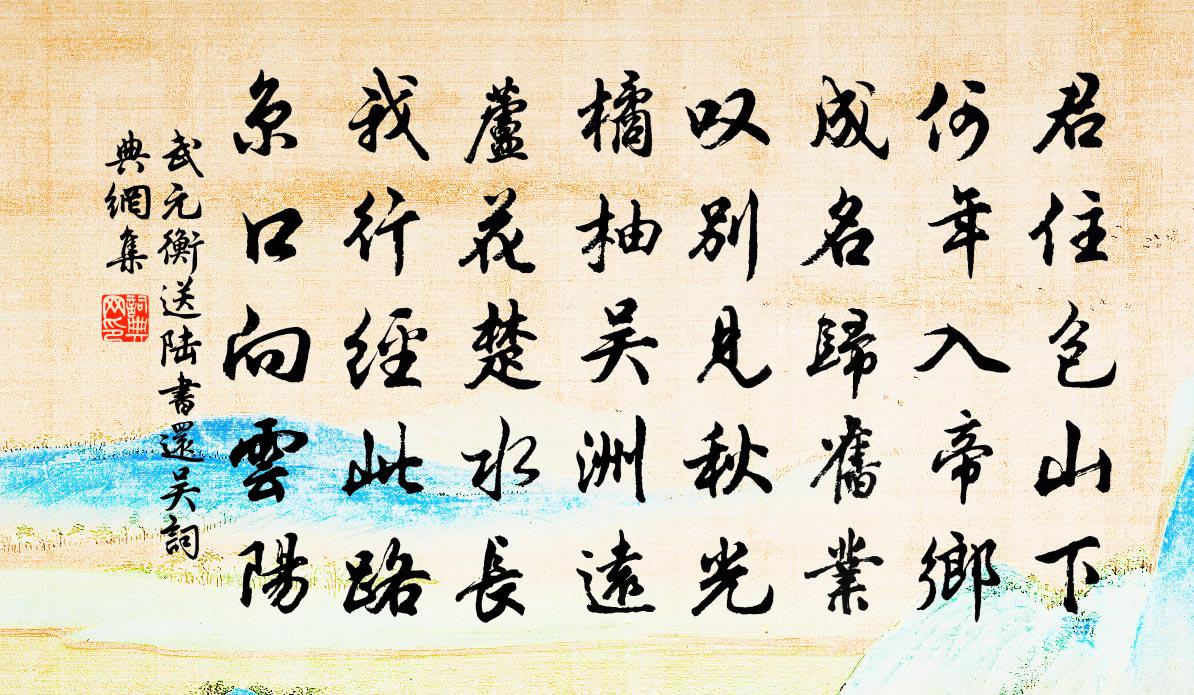 君住包山下
何年入帝鄉
成名歸舊業
叹別見秋光
橘柚吴洲遠
蘆花楚水長
我行經此路
京口向雲陽
武元衡送陆書還吴詞
典網集
詞典
网印